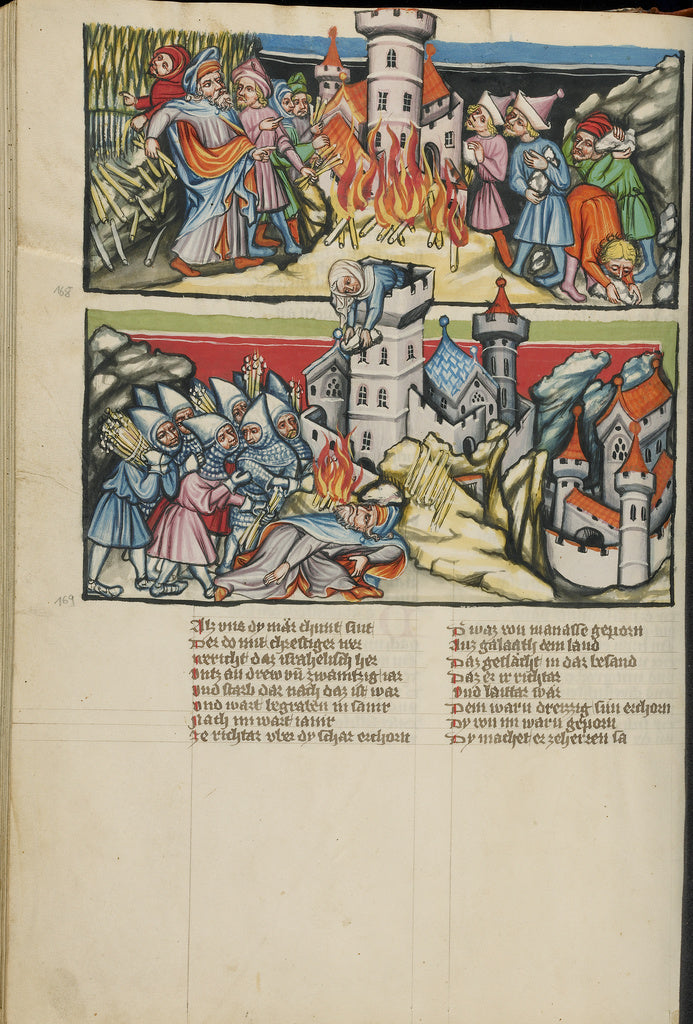 168
169
Alz vns dy mär chunt sint
Der do mit chreftiger wer
Bericht daz israhelisch her
Vntz an drew vn̄ zwaintzig iar
Vnd starb dar nach daz ist war
Vnd wart begraben in samir
Nach im wart iair
Ze richtar vber dy schar erchorn
D waz von manasse geporn
Auz galaath dem land
Daz geslächt in daz besand
Daz er ir richtar
Vnd lautar wär
Dem warn dreizzig sun erchorn
Dy von im warn geporn
Dy machet er ze herren sa